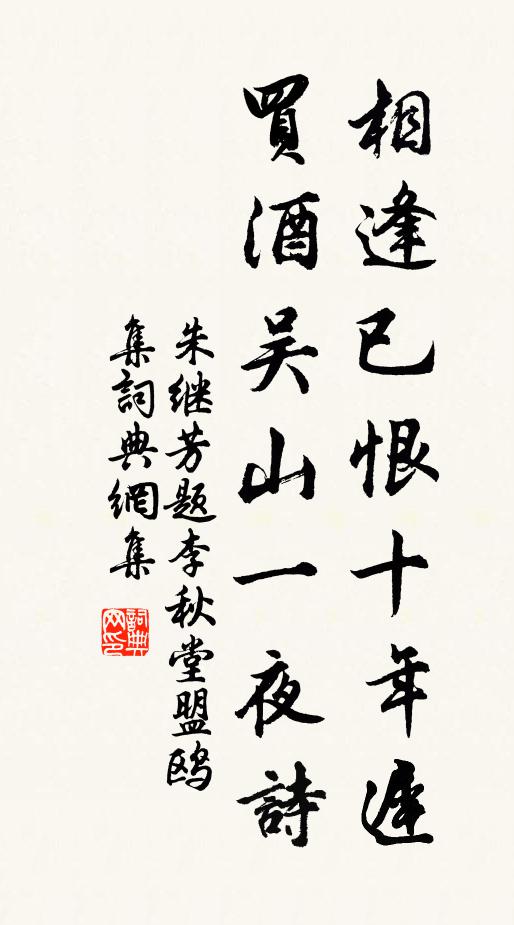 相逢已恨十年遲
買酒吴山一夜詩
朱继芳题李秋堂盟鸥
集詞典網集
詞典網印